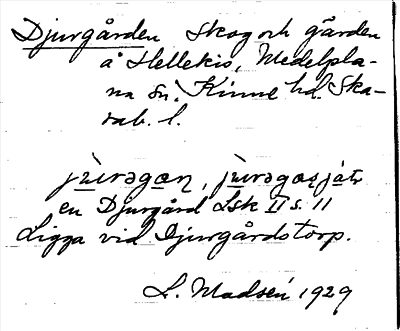 Djurgården Skog och gärden
å Hellekis, Medelpla-
na sn, Kinne hd. Ska-
rab. l.
en Djurgård Lsk II s. 11
Ligga vid Djurgårdstorp.
L. Madsén 1929